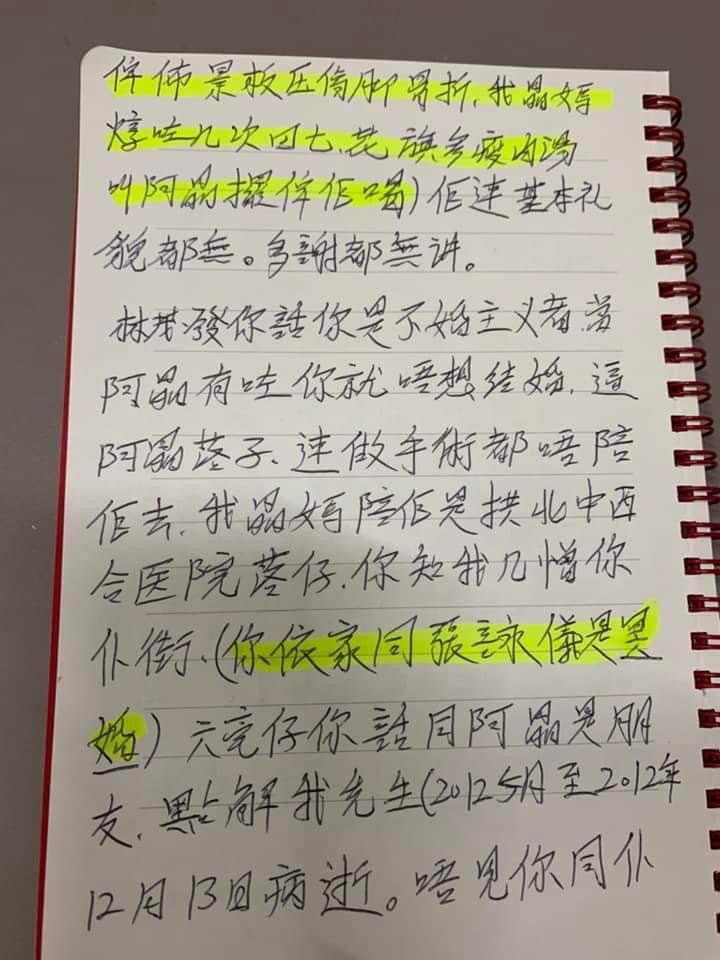 佈景板压傷脚骨折，我晶媽
炖咗几次田七、花旗参瘦肉湯
叫阿晶攞佢喝）佢連基本礼
貌都無。多謝都無讲。
林茂發你話你是不婚主义者，當
阿晶有咗你就唔想结婚，逼
阿晶落子、連做手術都唔陪
佢去，我晶媽陪佢是拱北中西
合医院落仔，你知我几憎你
仆街、（你依家同張詠儀是
婚）六壳仔你話同阿晶是朋
友，點解我先生（2012 5月至2012年
12月13日病逝。唔見你同仆